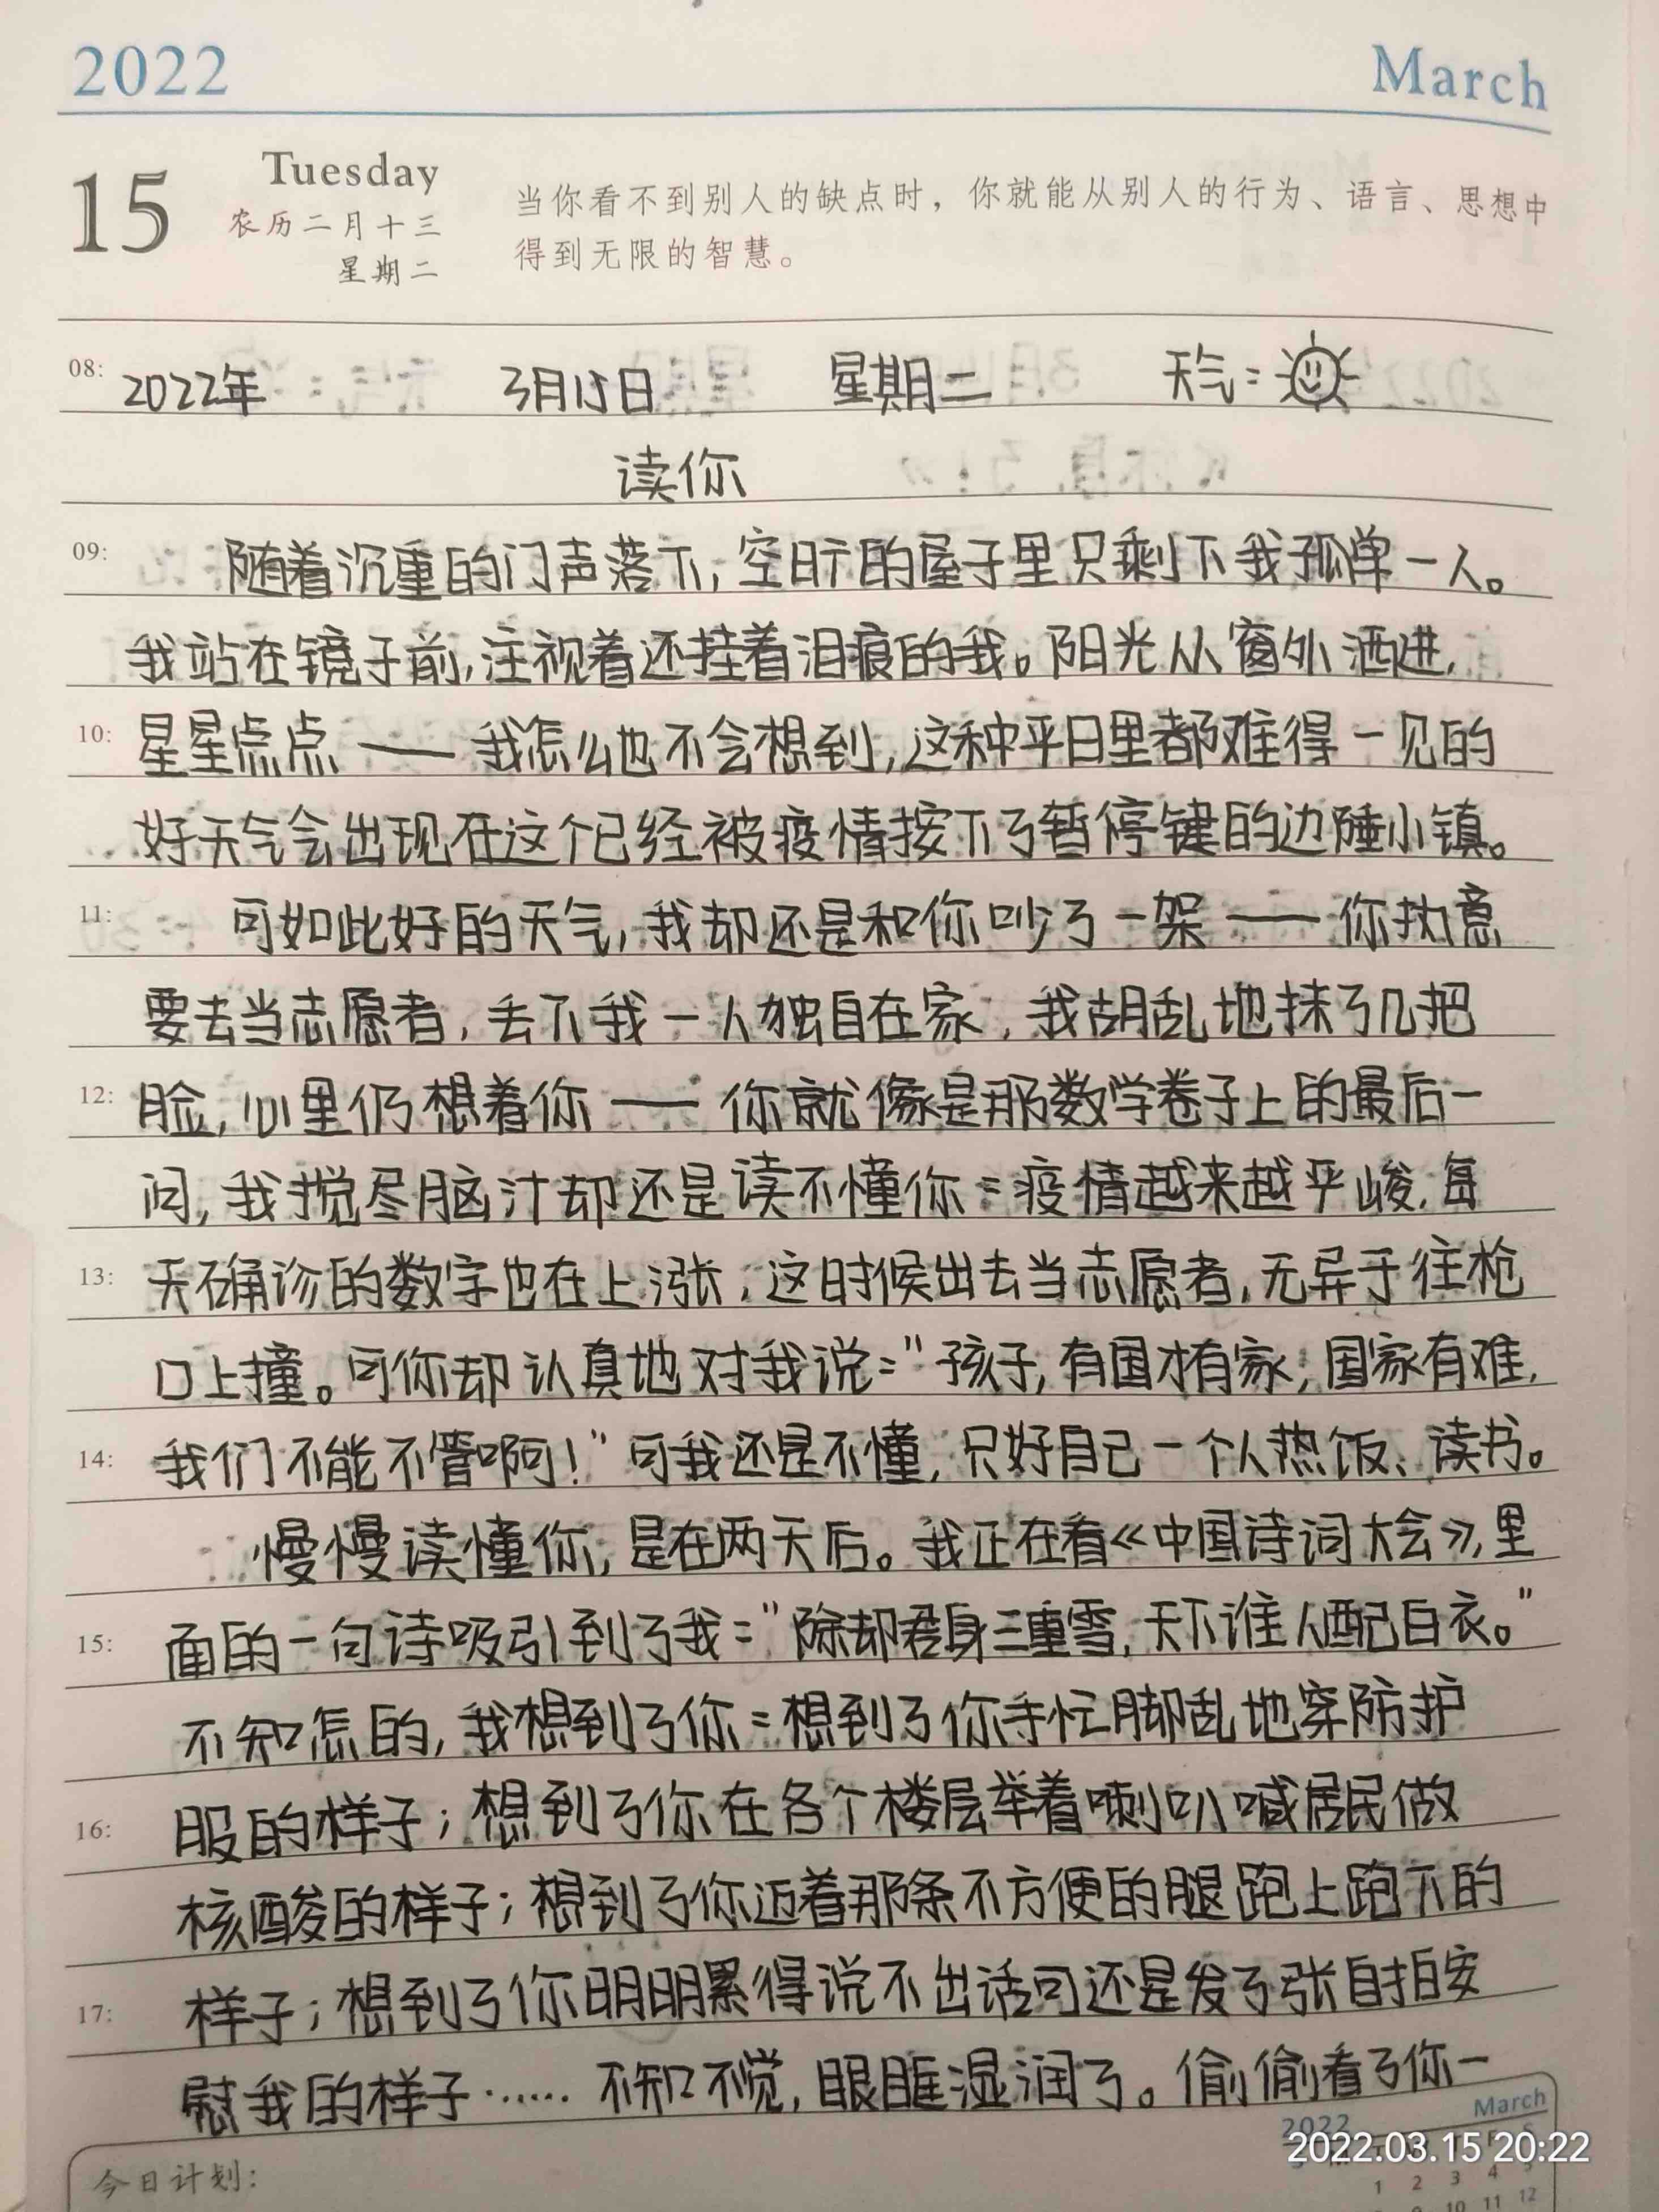 2022
March
15
Tuesday
农历二月十三
星期二
当你看不到别人的缺点时，你就能从别人的行为、语言、思想中
得到无限的智慧。
08: 2022年 3月15日 星期二 天气:
读你
09: 随着沉重的门声落下,空旷的屋子里只剩下我孤单一人。
我站在镜子前,注视着还挂着泪痕的我。阳光从窗外洒进,
10: 星星点点——我怎么也不会想到,这种平日里都难得一见的
好天气会出现在这个已经被疫情按下了暂停键的边陲小镇。
11: 可如此好的天气,我却还是和你吵了一架——你执意
要去当志愿者,丢下我一人独自在家,我胡乱地抹了几把
12: 脸,心里仍想着你——你就像是那数学卷子上的最后一
问,我搅尽脑汁却还是读不懂你:疫情越来越严峻,每
13: 天确诊的数字也在上涨,这时候出去当志愿者,无异于往枪
口上撞。可你却认真地对我说:"孩子,有国才有家,国家有难,
14: 我们不能不管啊!"可我还是不懂,只好自己一个人热饭、读书。
慢慢读懂你,是在两天后。我正在看《中国诗词大会》,里
15: 面的一句诗吸引到了我:"除却君身三重雪,天下谁人配白衣。"
不知怎的,我想到了你:想到了你手忙脚乱地穿防护
16: 服的样子;想到了你在各个楼层举着喇叭喊居民做
核酸的样子;想到了你迈着那条不方便的腿跑上跑下的
17: 样子;想到了你明明累得说不出话可还是发了张自拍安
慰我的样子……不知不觉,眼眶湿润了。偷偷看了你一
今日计划:
2022 March
1 2 3 4 5
9 10 11 12
2022.03.15 20:22